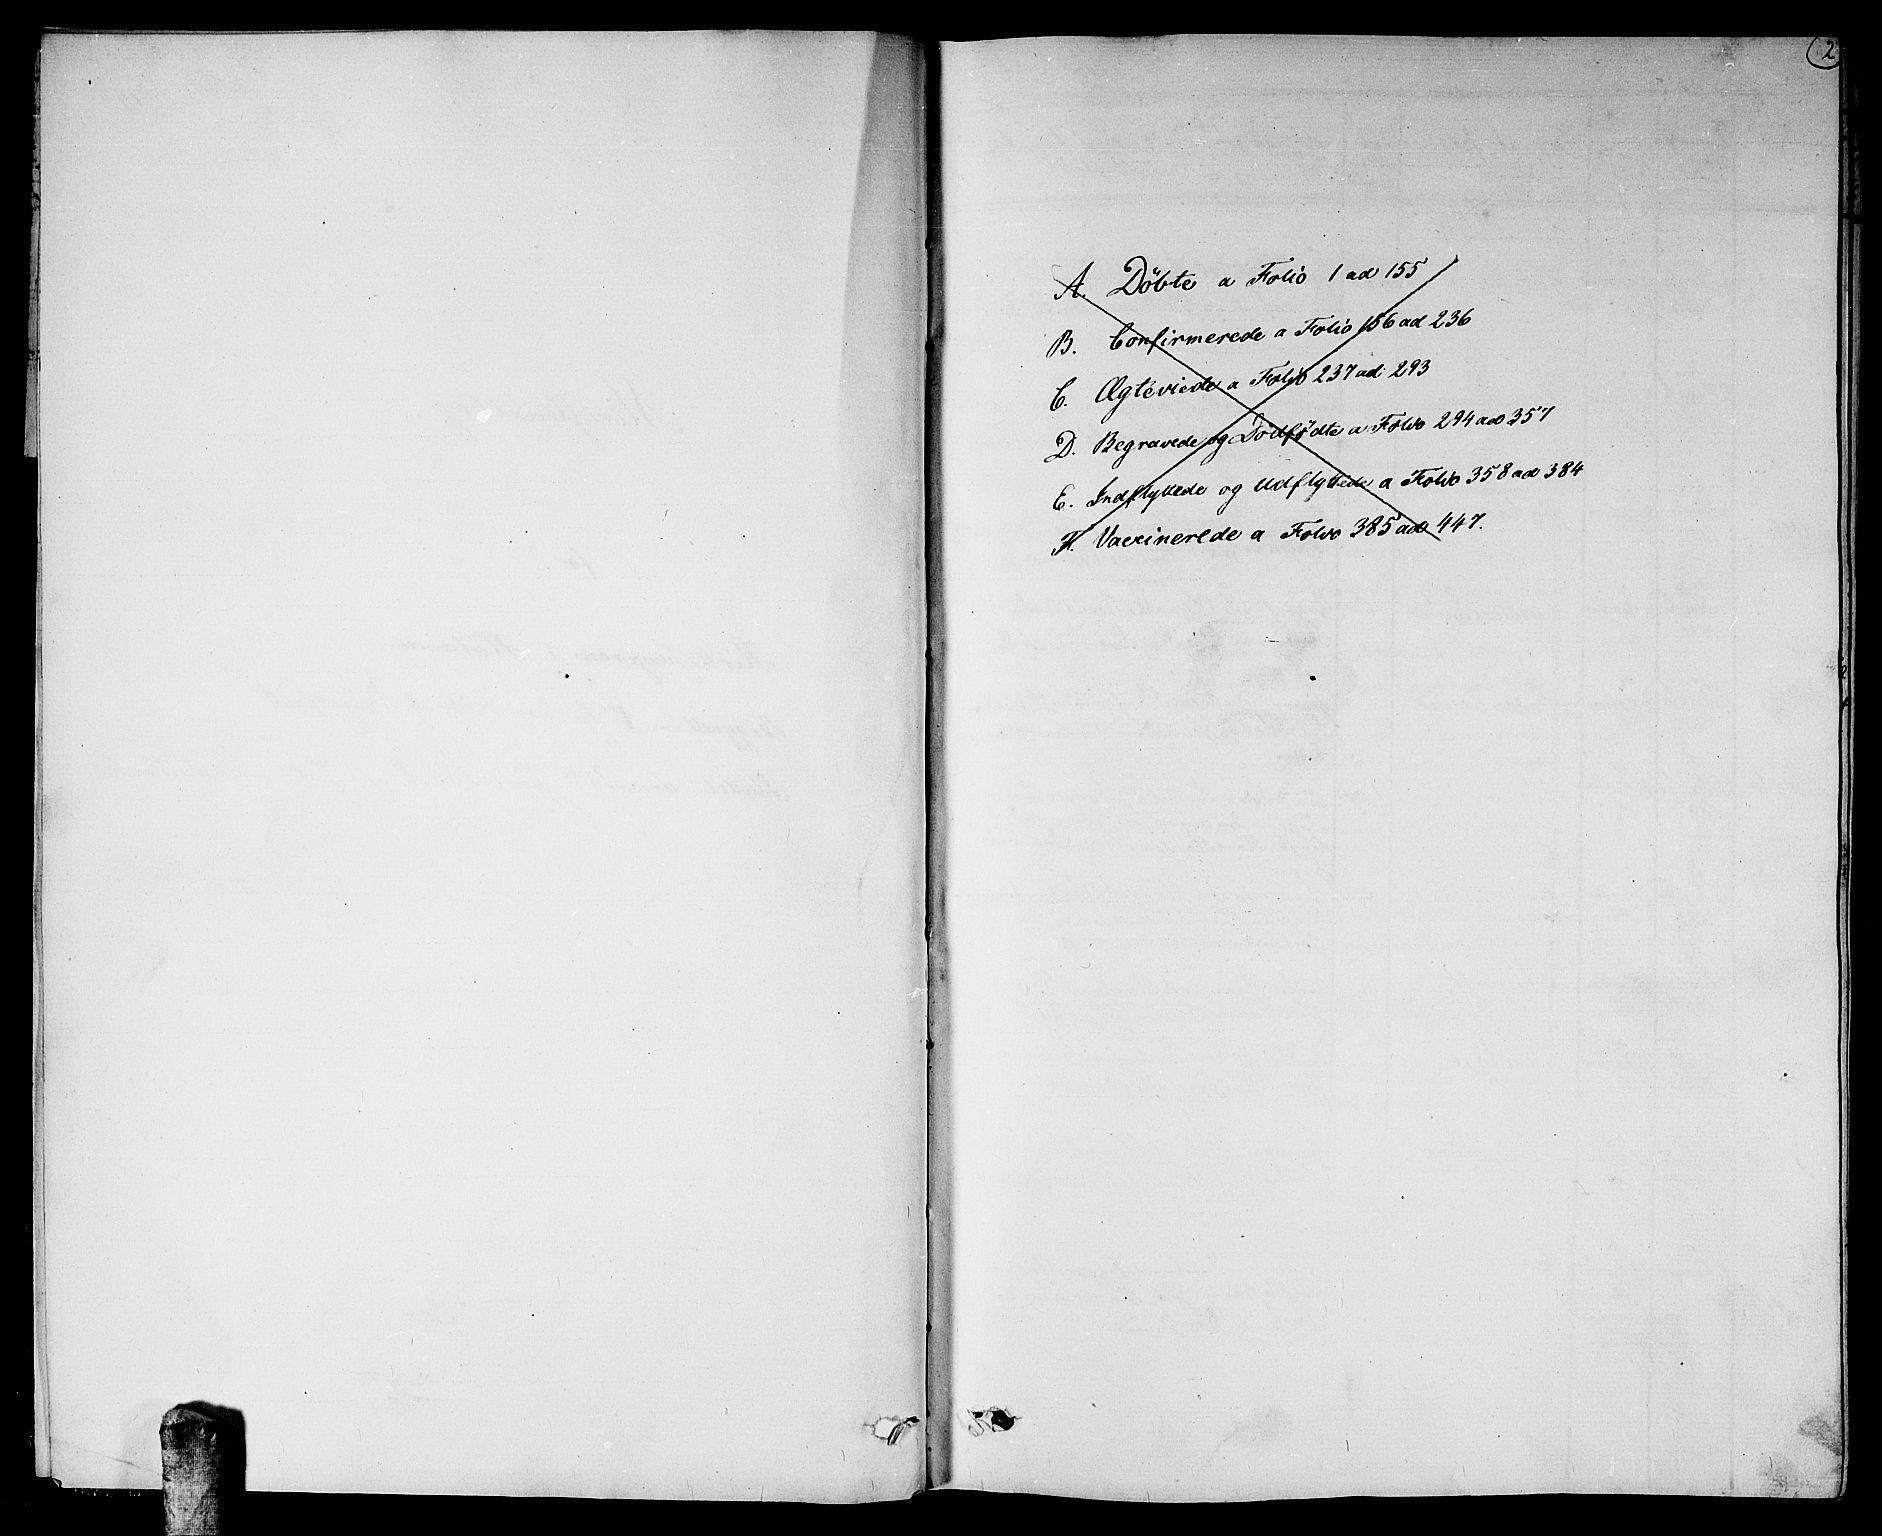 2
A. Döbte a Folio 1 ad 155
B. Confirmerede a Folio 156 ad 236
C. Ægteviede a Folio 237 ad 293
D. Begravede og Dödfödte a Folio 294 ad 357
E. Indflyttede og Udflyttede a Folio 358 ad 384
F. Vaccinerede a Folio 385 ad 447.